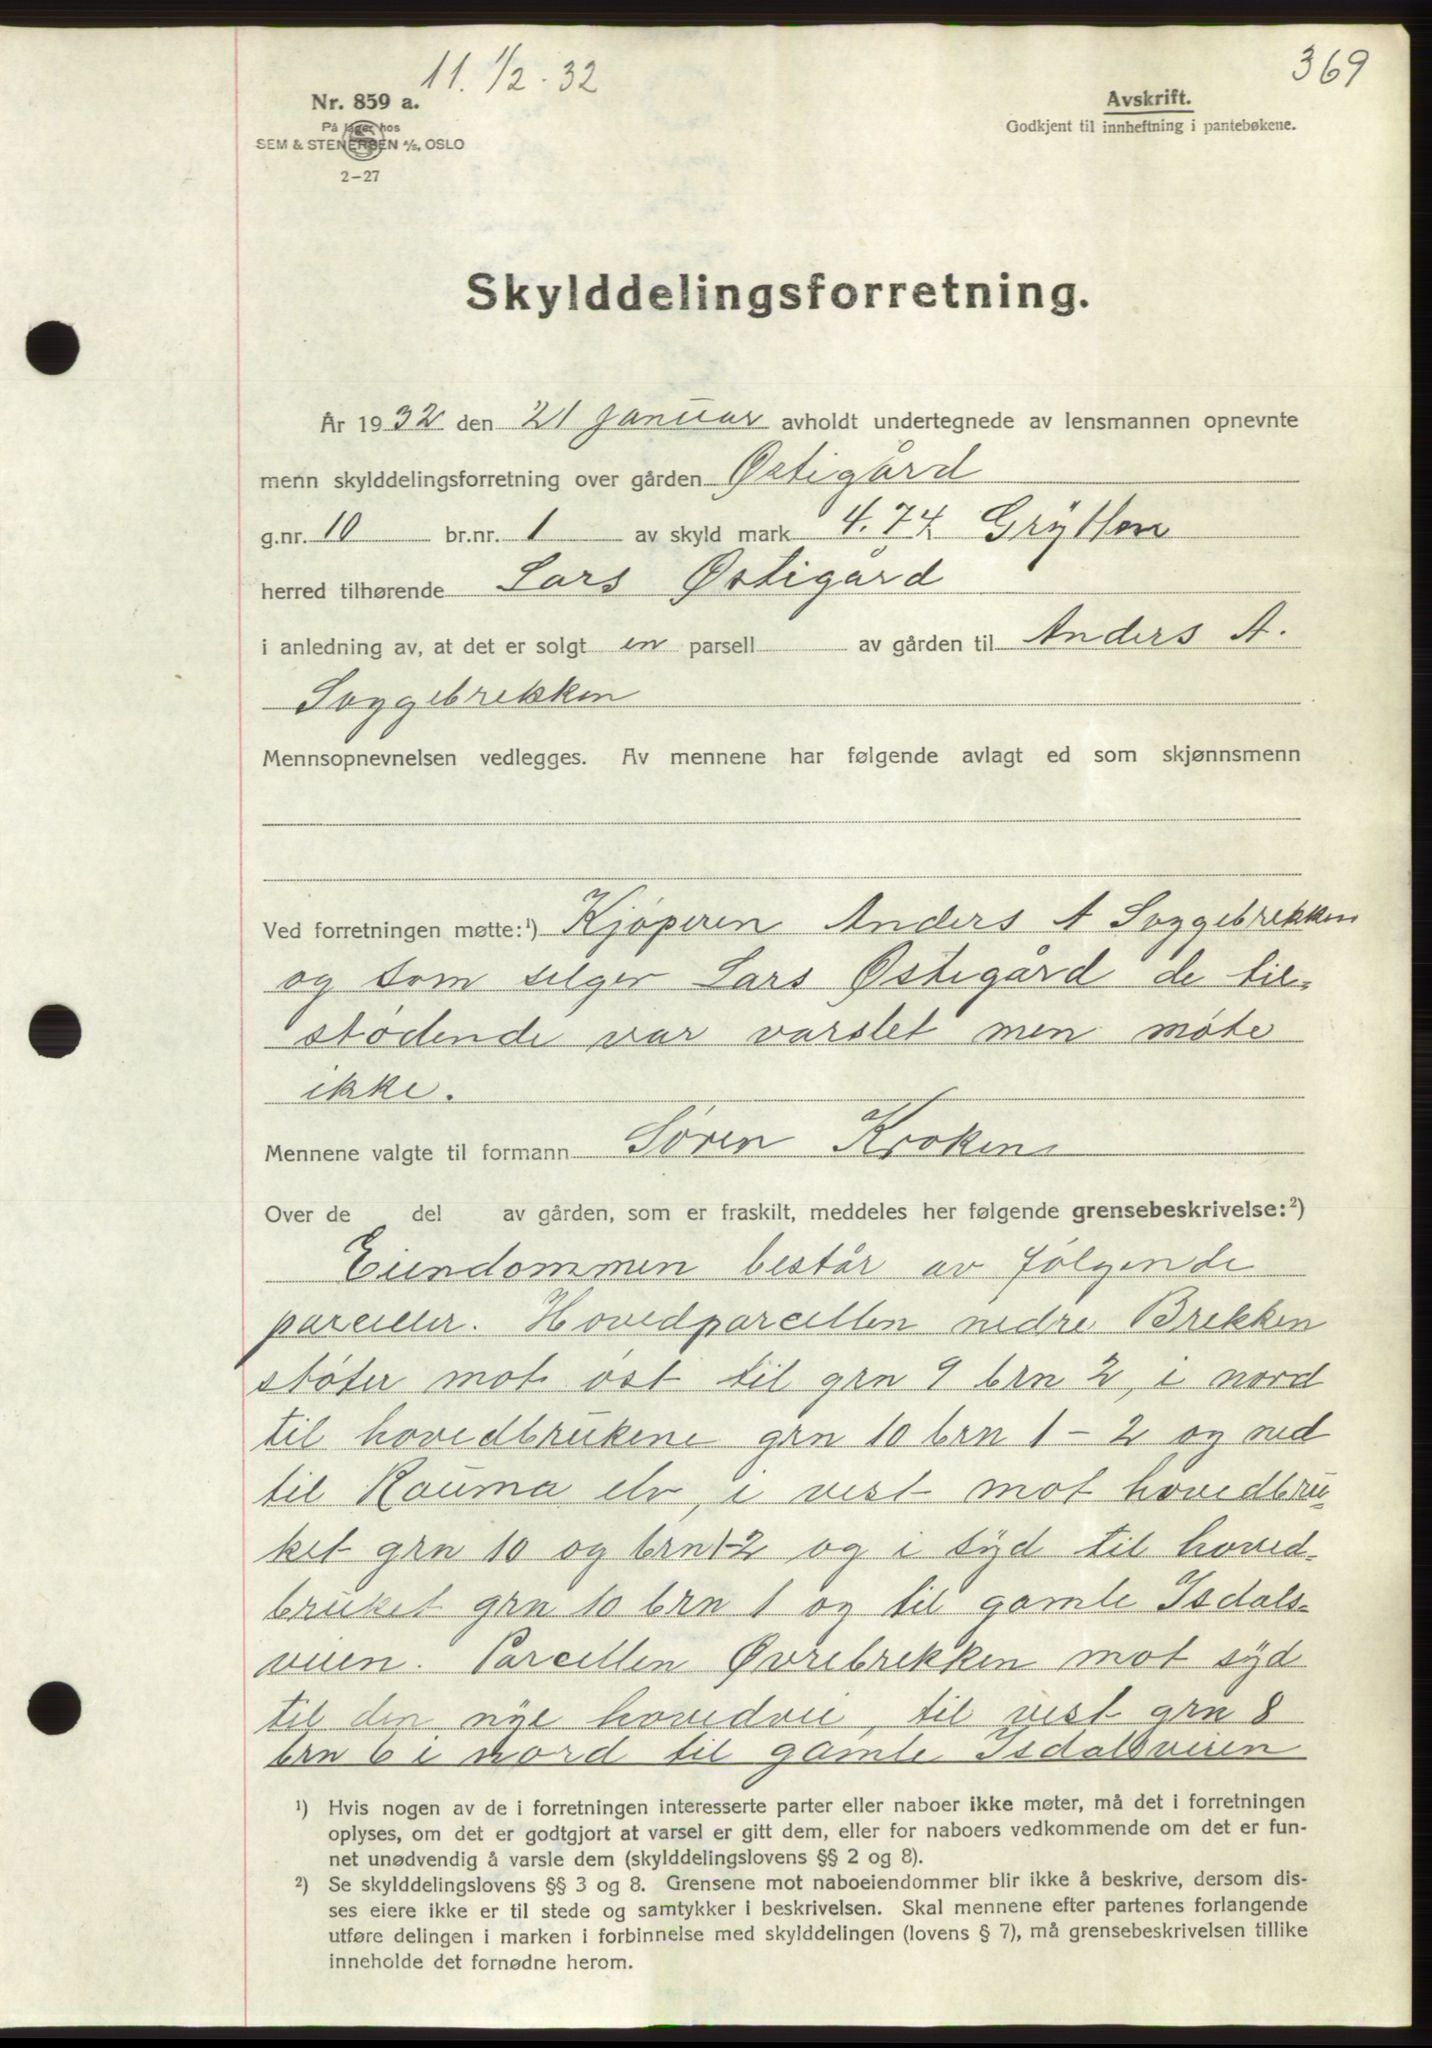 11. 1/2-32
369
Nr. 859 a.
På lager hos
SEM & STENERSEN A/S, OSLO
2-27
Avskrift.
Godkjent til innheftning i pantebøkene.
Skylddelingsforretning.
År 1932 den 21 januar avholdt undertegnede av lensmannen opnevnte
menn skylddelingsforretning over gården Østigård
g.nr. 10 br.nr. 1 av skyld mark 4.74 Grytten
herred tilhørende Lars Østigård
i anledning av, at det er solgt en parsell av gården til Anders A.
Soggebrekken
Mennsopnevnelsen vedlegges. Av mennene har følgende avlagt ed som skjønnsmenn
Ved forretningen møtte:¹) Kjøperen Anders A Soggebrekken
og som selger Lars Østegård de til-
stødende var varslet men møte
ikke.
Mennene valgte til formann Søren Kroken
Over de del av gården, som er fraskilt, meddeles her følgende grensebeskrivelse:²)
Eiendommen består av følgende
parceller. Hovedparcellen nedre Brekken
støter mot øst til grn 9 brn 2, i nord
til hovedbrukene grn 10 brn 1-2 og ned
til Rauma elv, i vest mot hovedbru-
ket grn 10 og brn 1-2 og i syd til hoved-
bruket grn 10 brn 1 og til gamle Isdals-
veien. Parcellen Øvrebrekken mot syd
til den nye hovedvei, til vest grn 8
brn 6 i nord til gamle Isdalsveien
¹) Hvis nogen av de i forretningen interesserte parter eller naboer ikke møter, må det i forretningen
oplyses, om det er godtgjort at varsel er gitt dem, eller for naboers vedkommende om det er fun-
net unødvendig å varsle dem (skylddelingslovens §§ 2 og 8).
²) Se skylddelingslovens §§ 3 og 8. Grensene mot naboeiendommer blir ikke å beskrive, dersom dis-
ses eiere ikke er til stede og samtykker i beskrivelsen. Skal mennene efter partenes forlangende
utføre delingen i marken i forbinnelse med skylddelingen (lovens § 7), må grensebeskrivelsen tillike
inneholde det fornødne herom.